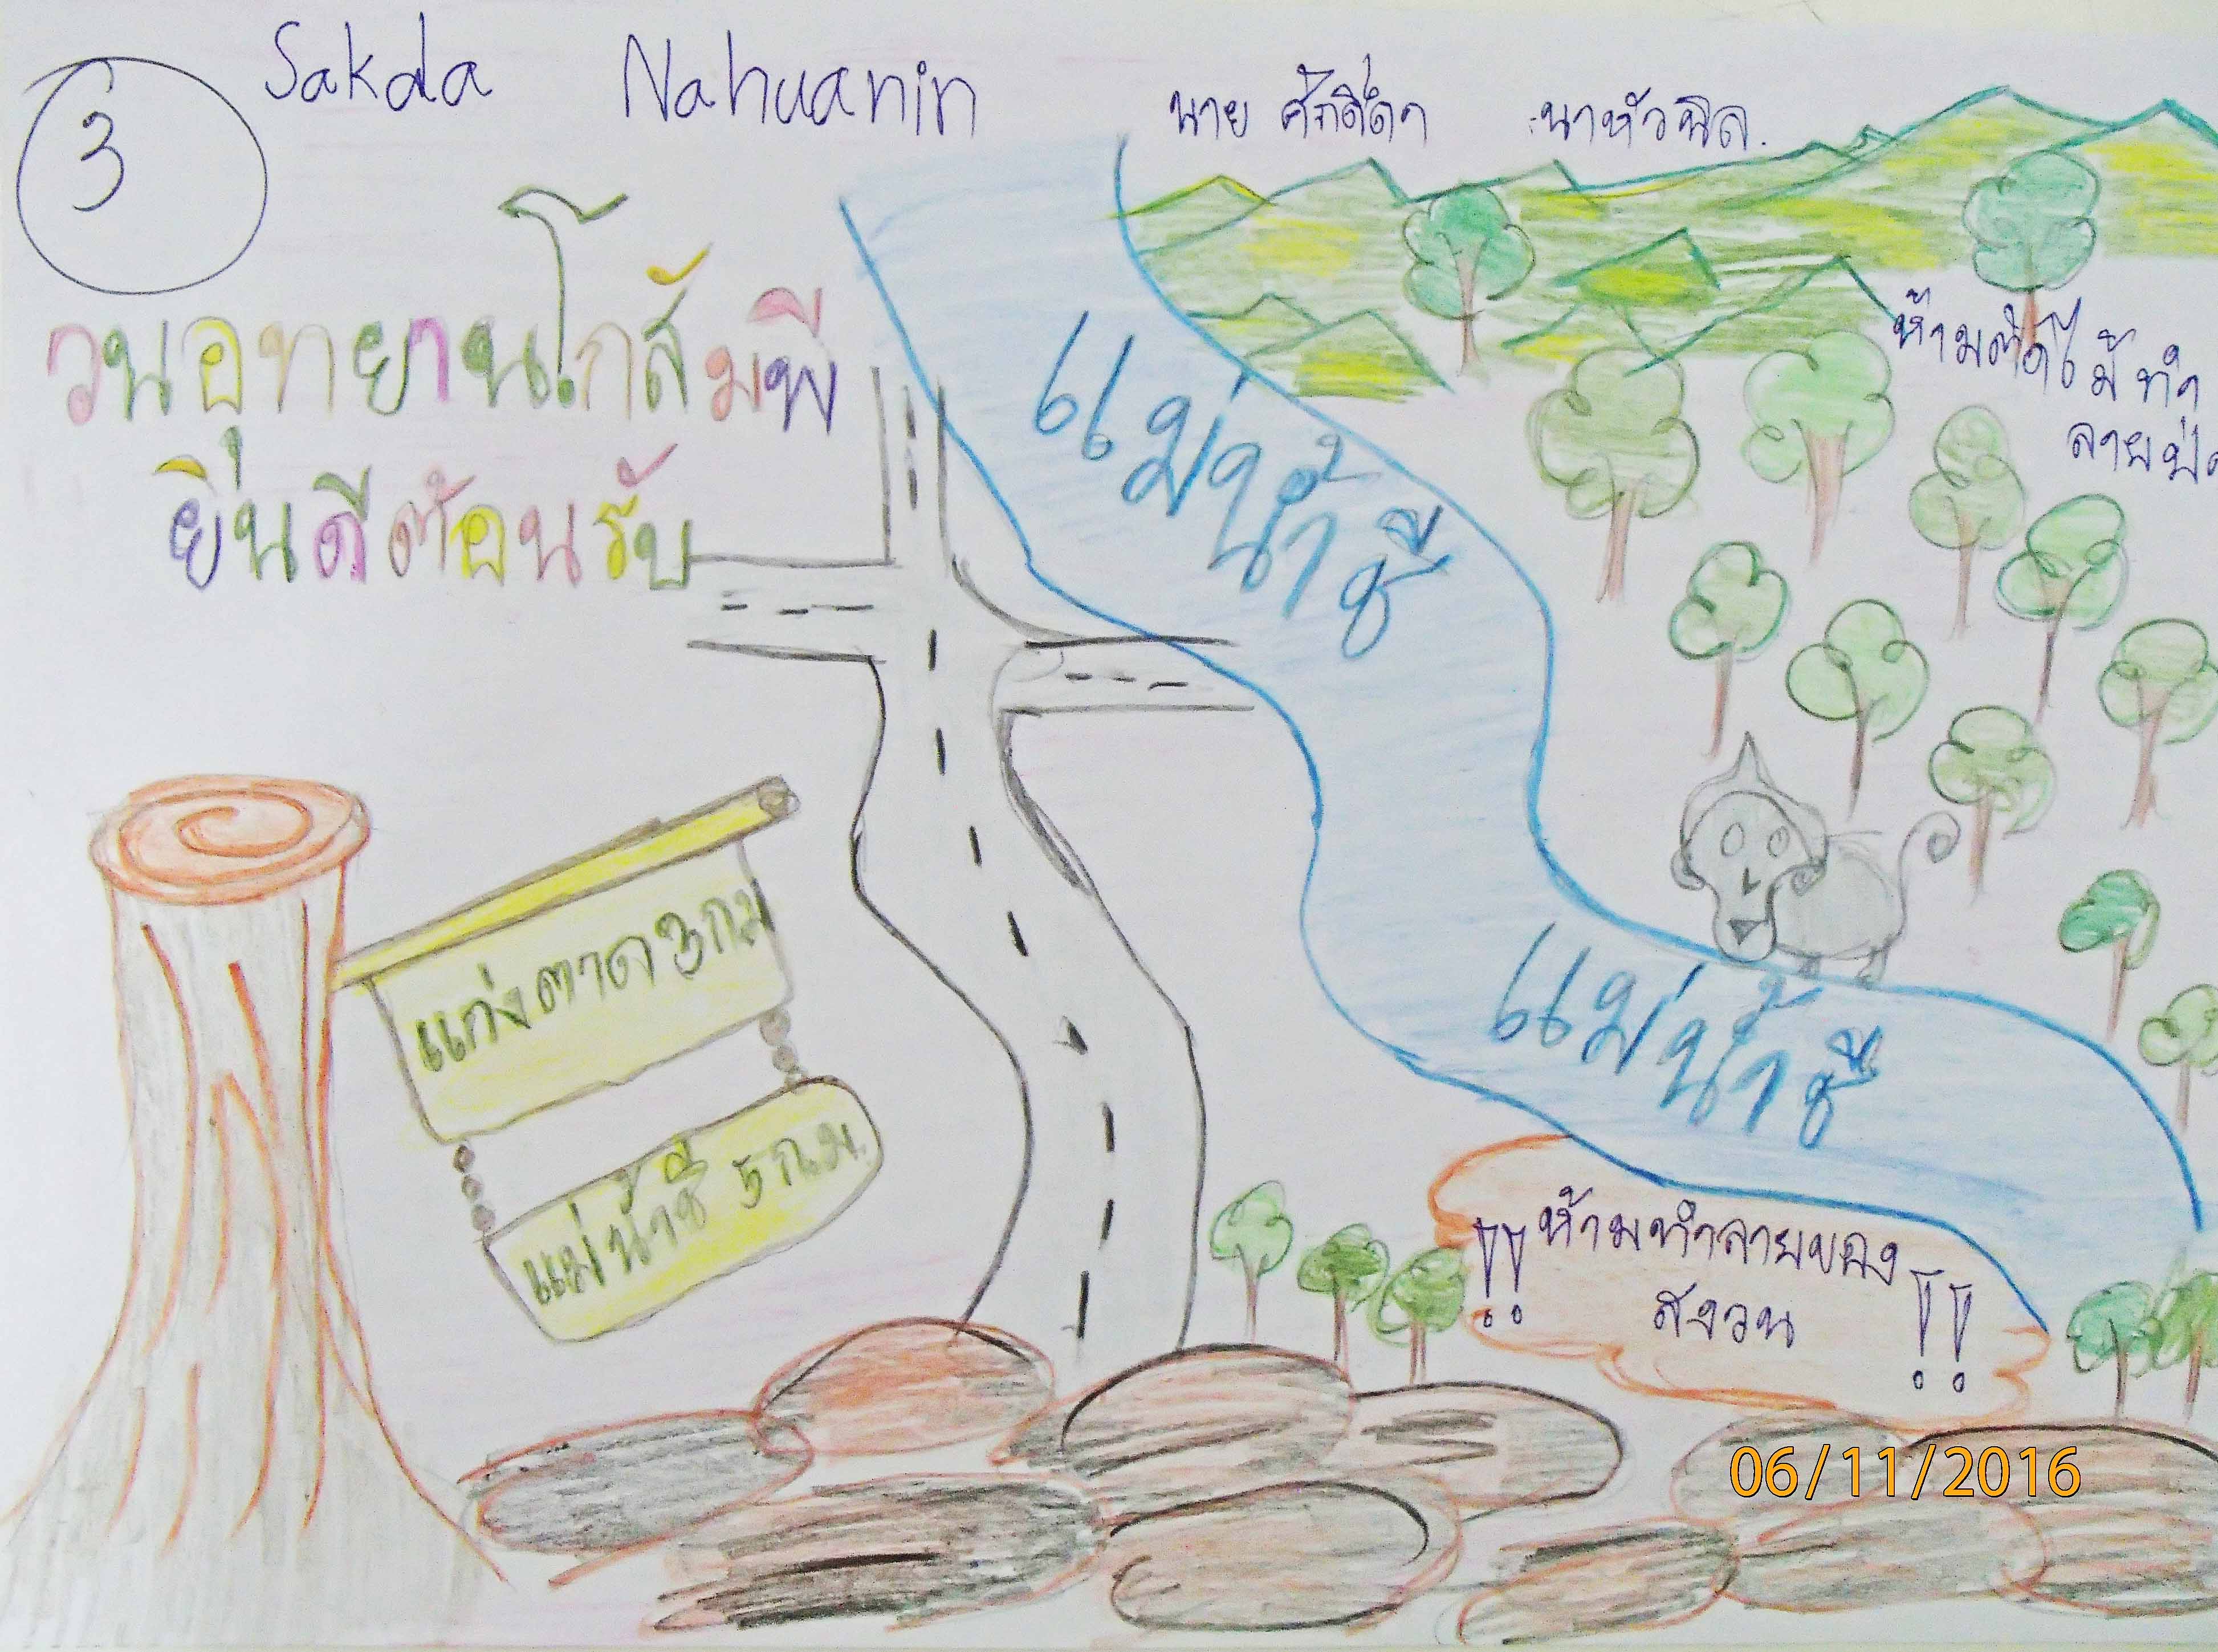 3
Sakda Nahuanin
นาย ศักดิ์ดา นาหัวนิล.
วนอุทยานโกสัมพี
ยินดีต้อนรับ
ห้ามตัดไม้ ทำ
ลายป่า
แม่น้ำชี
แก่งตาด 3 กม
แม่น้ำชี 5 กม.
แม่น้ำชี
!! ห้ามทำลายของ
สงวน !!
06/11/2016